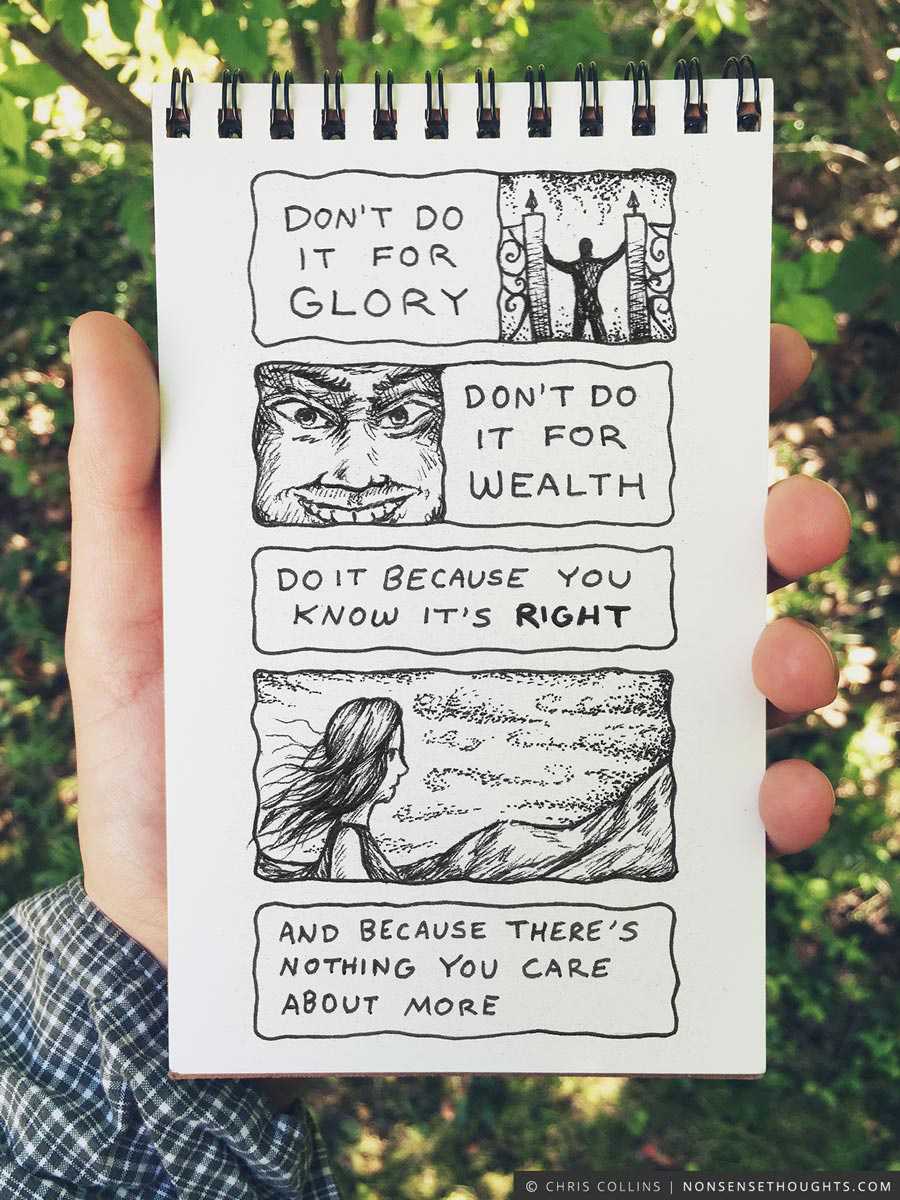 DON'T DO
IT FOR
GLORY
DON'T DO
IT FOR
WEALTH
DO IT BECAUSE YOU
KNOW IT'S RIGHT
AND BECAUSE THERE'S
NOTHING YOU CARE
ABOUT MORE
© CHRIS COLLINS | NONSENSETHOUGHTS.COM